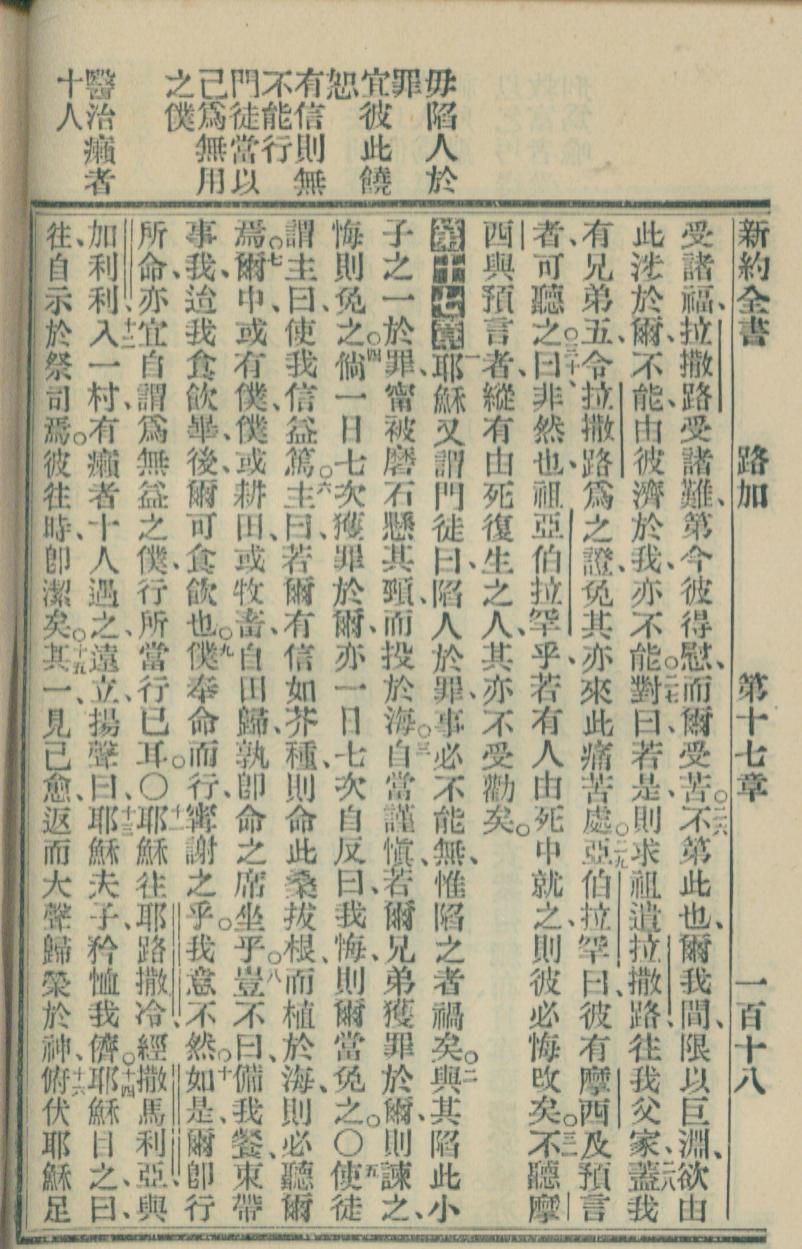 毋陷人於
罪
宜彼此饒
恕
有信則無
不能行
門徒當以
己爲無用
之僕
醫治癩者
十人
新約全書 路加 第十七章 一百十八
受諸福、拉撒路受諸難、第今彼得慰、而爾受苦。二六不第此也、爾我間、限以巨淵、欲由
此涉於爾、不能、由彼濟於我、亦不能。二七對曰、若是、則求祖遣拉撒路往我父家、二八蓋我
有兄弟五、令拉撒路爲之證、免其亦來此痛苦處。二九亞伯拉罕曰、彼有摩西及預言
者、可聽之。三十曰、非然也、祖亞伯拉罕乎、若有人由死中就之、則彼必悔改矣。三一不聽摩
西與預言者、縱有由死復生之人、其亦不受勸矣。
第十七章一耶穌又謂門徒曰、陷人於罪、事必不能無、惟陷之者禍矣。二與其陷此小
子之一於罪、甯被磨石懸其頸、而投於海。三自當謹愼、若爾兄弟獲罪於爾、則諫之、
悔則免之。四倘一日七次獲罪於爾、亦一日七次自反曰、我悔、則爾當免之。〇五使徒
謂主曰、使我信益篤。六主曰、若爾有信如芥種、則命此桑拔根、而植於海、則必聽爾
焉。七爾中、或有僕、僕或耕田、或牧畜、自田歸、孰卽命之席坐乎。八豈不曰、備我餐、束帶
事我、迨我食飲畢、後爾可食飲也。九僕奉命而行、甯謝之乎。我意不然。十如是、爾卽行
所命、亦宜自謂爲無益之僕、行所當行已耳。〇十一耶穌往耶路撒冷、經撒馬利亞與
加利利、十二入一村、有癩者十人遇之、遠立、十三揚聲曰、耶穌夫子、矜恤我儕。十四耶穌目之曰、
往、自示於祭司焉。彼往時、卽潔矣。十五其一、見己愈、返而大聲歸榮於神、十六俯伏耶穌足